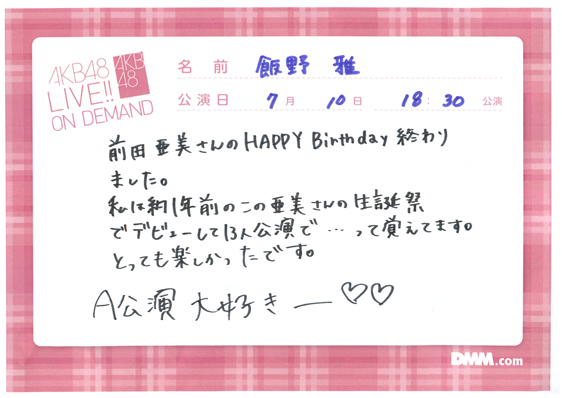 AKB48
LIVE!!
ON DEMAND
AKB
48
名前 飯野 雅
公演日 7月 10日 18:30 公演
前田亜美さんのHAPPY Birthday 終わり
ました。
私は約1年前のこの亜美さんの生誕祭
でデビューして13人公演で…って覚えてます。
とっても楽しかったです。
A公演 大好きー♡♡
DMM.com